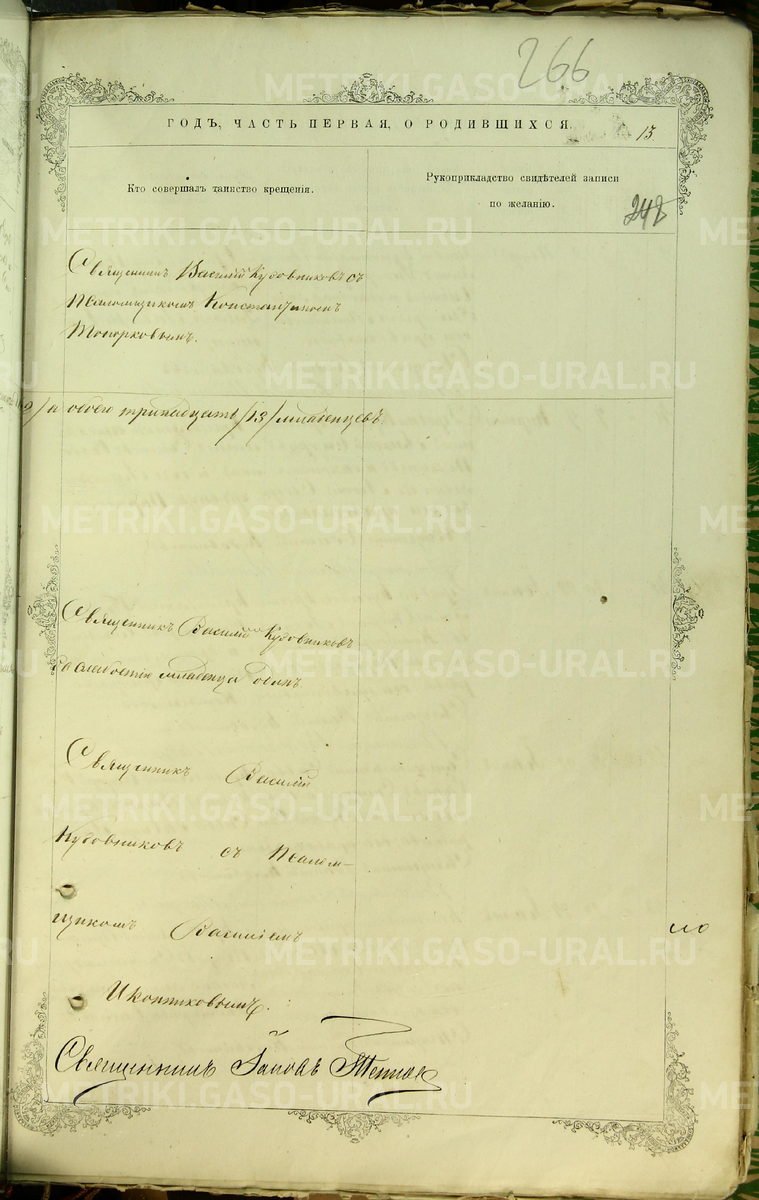 266
ГОДЪ, ЧАСТЬ ПЕРВАЯ, О РОДИВШИХСЯ.
13.
Кто совершалъ таинство крещенія.
Рукоприкладство свидѣтелей записи
по желанію.
242
Священникъ Василій Кудовниковъ съ
Псаломщикомъ Константиномъ
Топорковымъ.
и обоего тринадцать /13/ младенцевъ.
Священникъ Василій Кудовниковъ
по слабости младенца одинъ
Священникъ Василій
Кудовниковъ съ Псалом-
щикомъ Василіемъ
Иконниковымъ.
Священникъ Іаковъ
METRIKI.GASO-URAL.RU